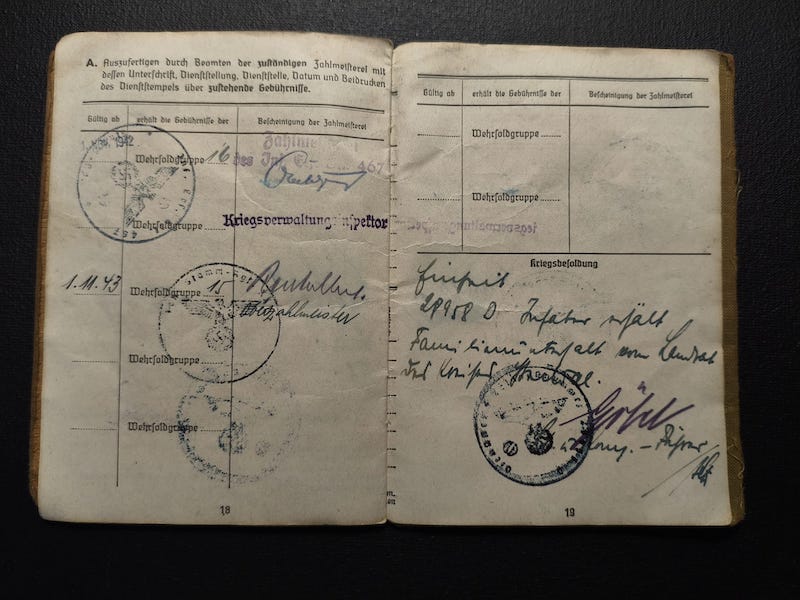 A. Auszufertigen durch Beamten der zuständigen Zahlmeisterei mit
dessen Unterschrift, Dienststellung, Dienststelle, Datum und Beidrucken
des Dienststempels über zustehende Gebührnisse.
Gültig ab
erhält die Gebührnisse der
Bescheinigung der Zahlmeisterei
1942
Wehrsoldgruppe 16
des 467
Wehrsoldgruppe
Kriegsverwaltungsinspektor
1.11.43
Wehrsoldgruppe 15
Oberzahlmeister
Wehrsoldgruppe
Wehrsoldgruppe
18
Gültig ab
erhält die Gebührnisse der
Bescheinigung der Zahlmeisterei
Wehrsoldgruppe
Wehrsoldgruppe
Kriegsbesoldung
Einheit
28958 D Inhaber erhält
Familienunterhalt vom Landrat
des Kreises
Göbel
19